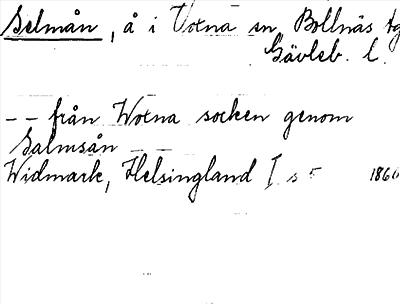 Selmån, å i Voxna sn, Bollnäs tg
Gävleb. l.
-- från Woxna socken genom
Salmsån --
Widmark, Helsingland I s 5 1860